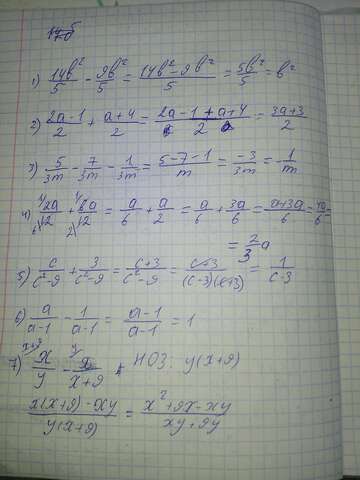 1) 14b²/5 - 9b²/5 = (14b² - 9b²)/5 = 5b²/5 = b²
2) (2a-1)/2 + (a+4)/2 = (2a-1+a+4)/2 = (3a+3)/2
3) 5/3m - 7/3m - 1/3m = (5-7-1)/m = -3/3m = -1/m
4) 2a/12 + 6a/12 = a/6 + a/2 = a/6 + 3a/6 = (a+3a)/6 = 4a/6 =
= 2/3 a
5) c/(c²-9) + 3/(c²-9) = (c+3)/(c²-9) = (c+3)/((c-3)(c+3)) = 1/(c-3)
6) a/(a-1) - 1/(a-1) = (a-1)/(a-1) = 1
7) x/y - x/(x+9) НОЗ: y(x+9)
(x(x+9)-xy)/(y(x+9)) = (x²+9x-xy)/(xy+9y)